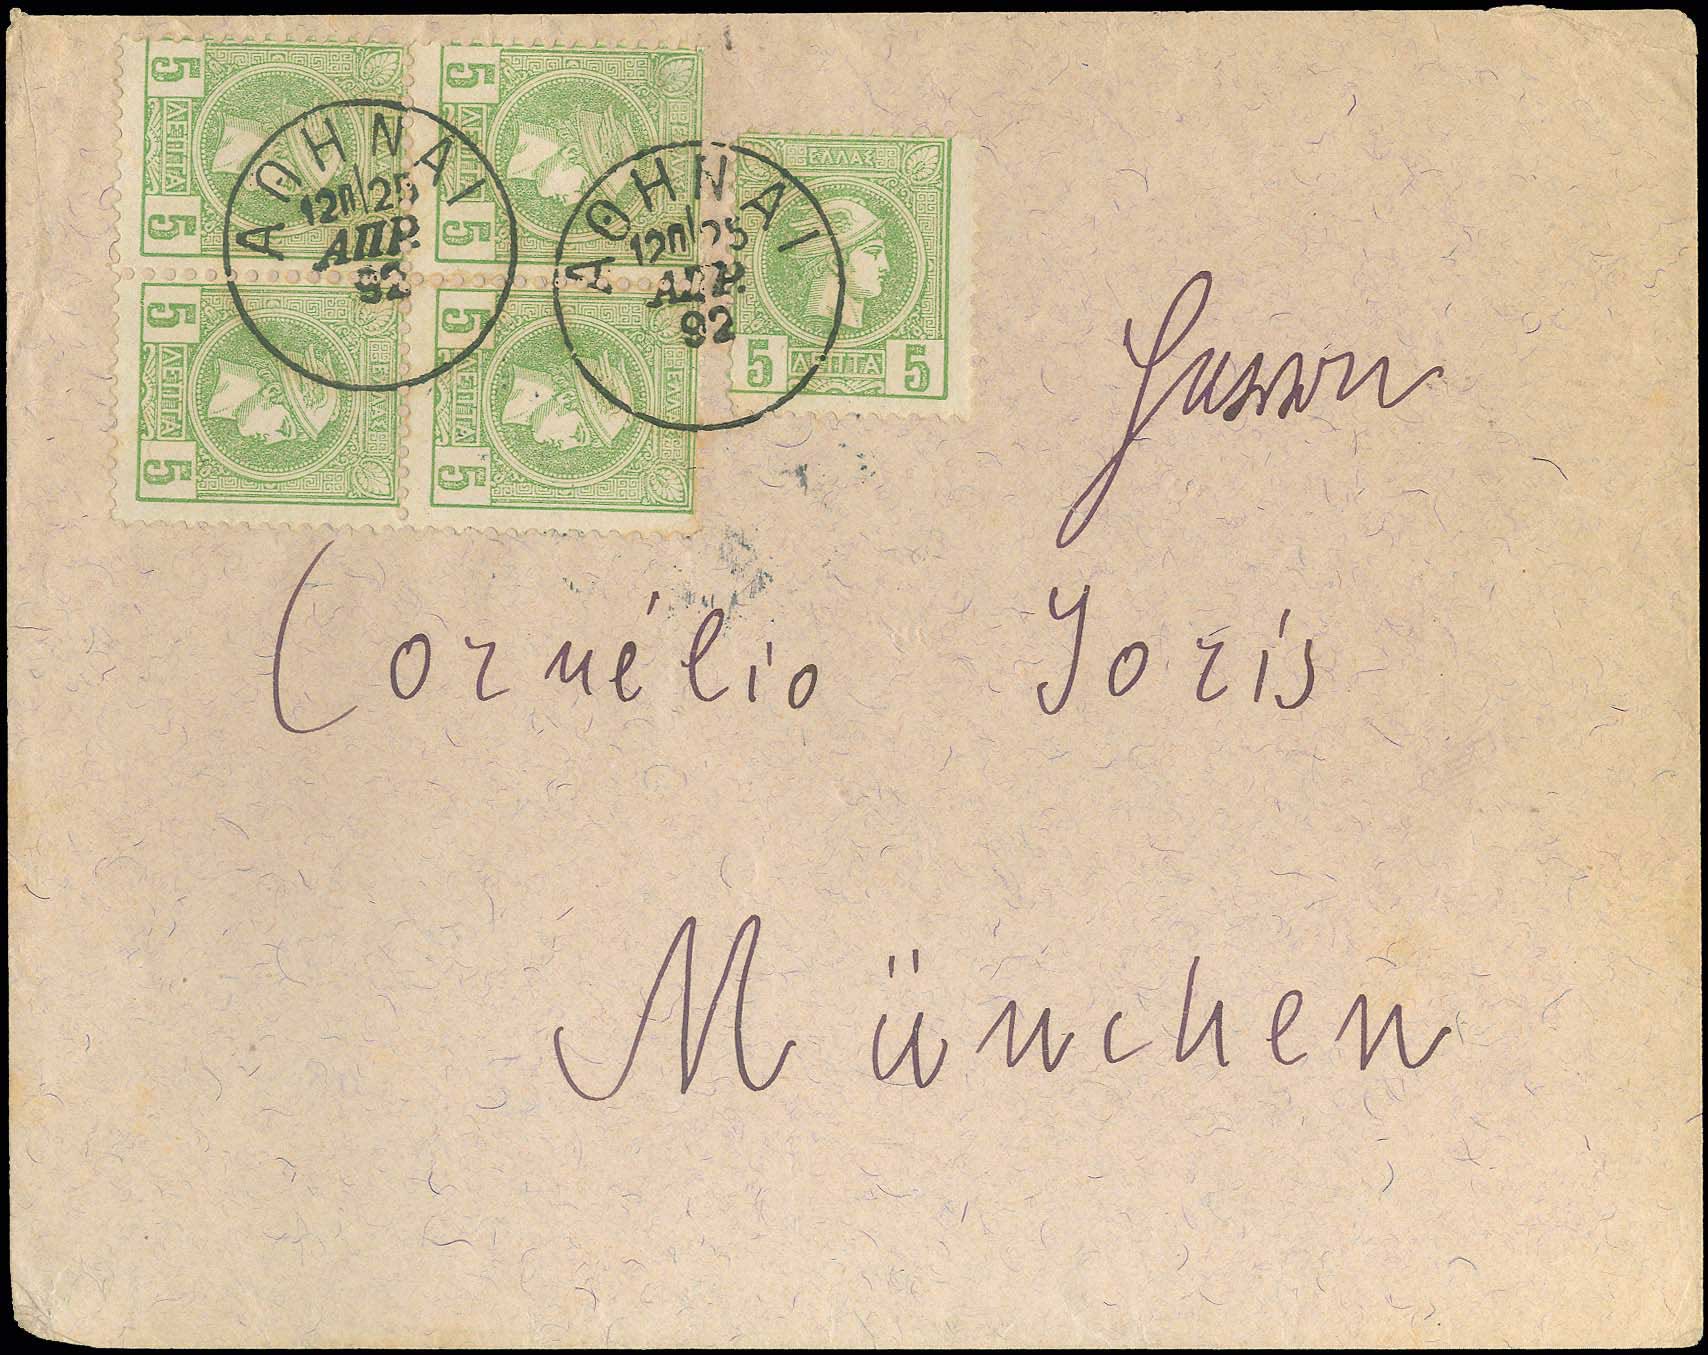 5 ΛΕΠΤΑ 5
5 ΛΕΠΤΑ 5 ΕΛΛΑΣ
5 ΛΕΠΤΑ 5 ΕΛΛΑΣ
5 ΛΕΠΤΑ 5 ΕΛΛΑΣ
ΕΛΛΑΣ
5 ΛΕΠΤΑ 5
ΑΘΗΝΑΙ
12Π/25
ΑΠΡ.
92
ΑΘΗΝΑΙ
12Π/25
ΑΠΡ.
92
Herrn
Cornélio Joris
München